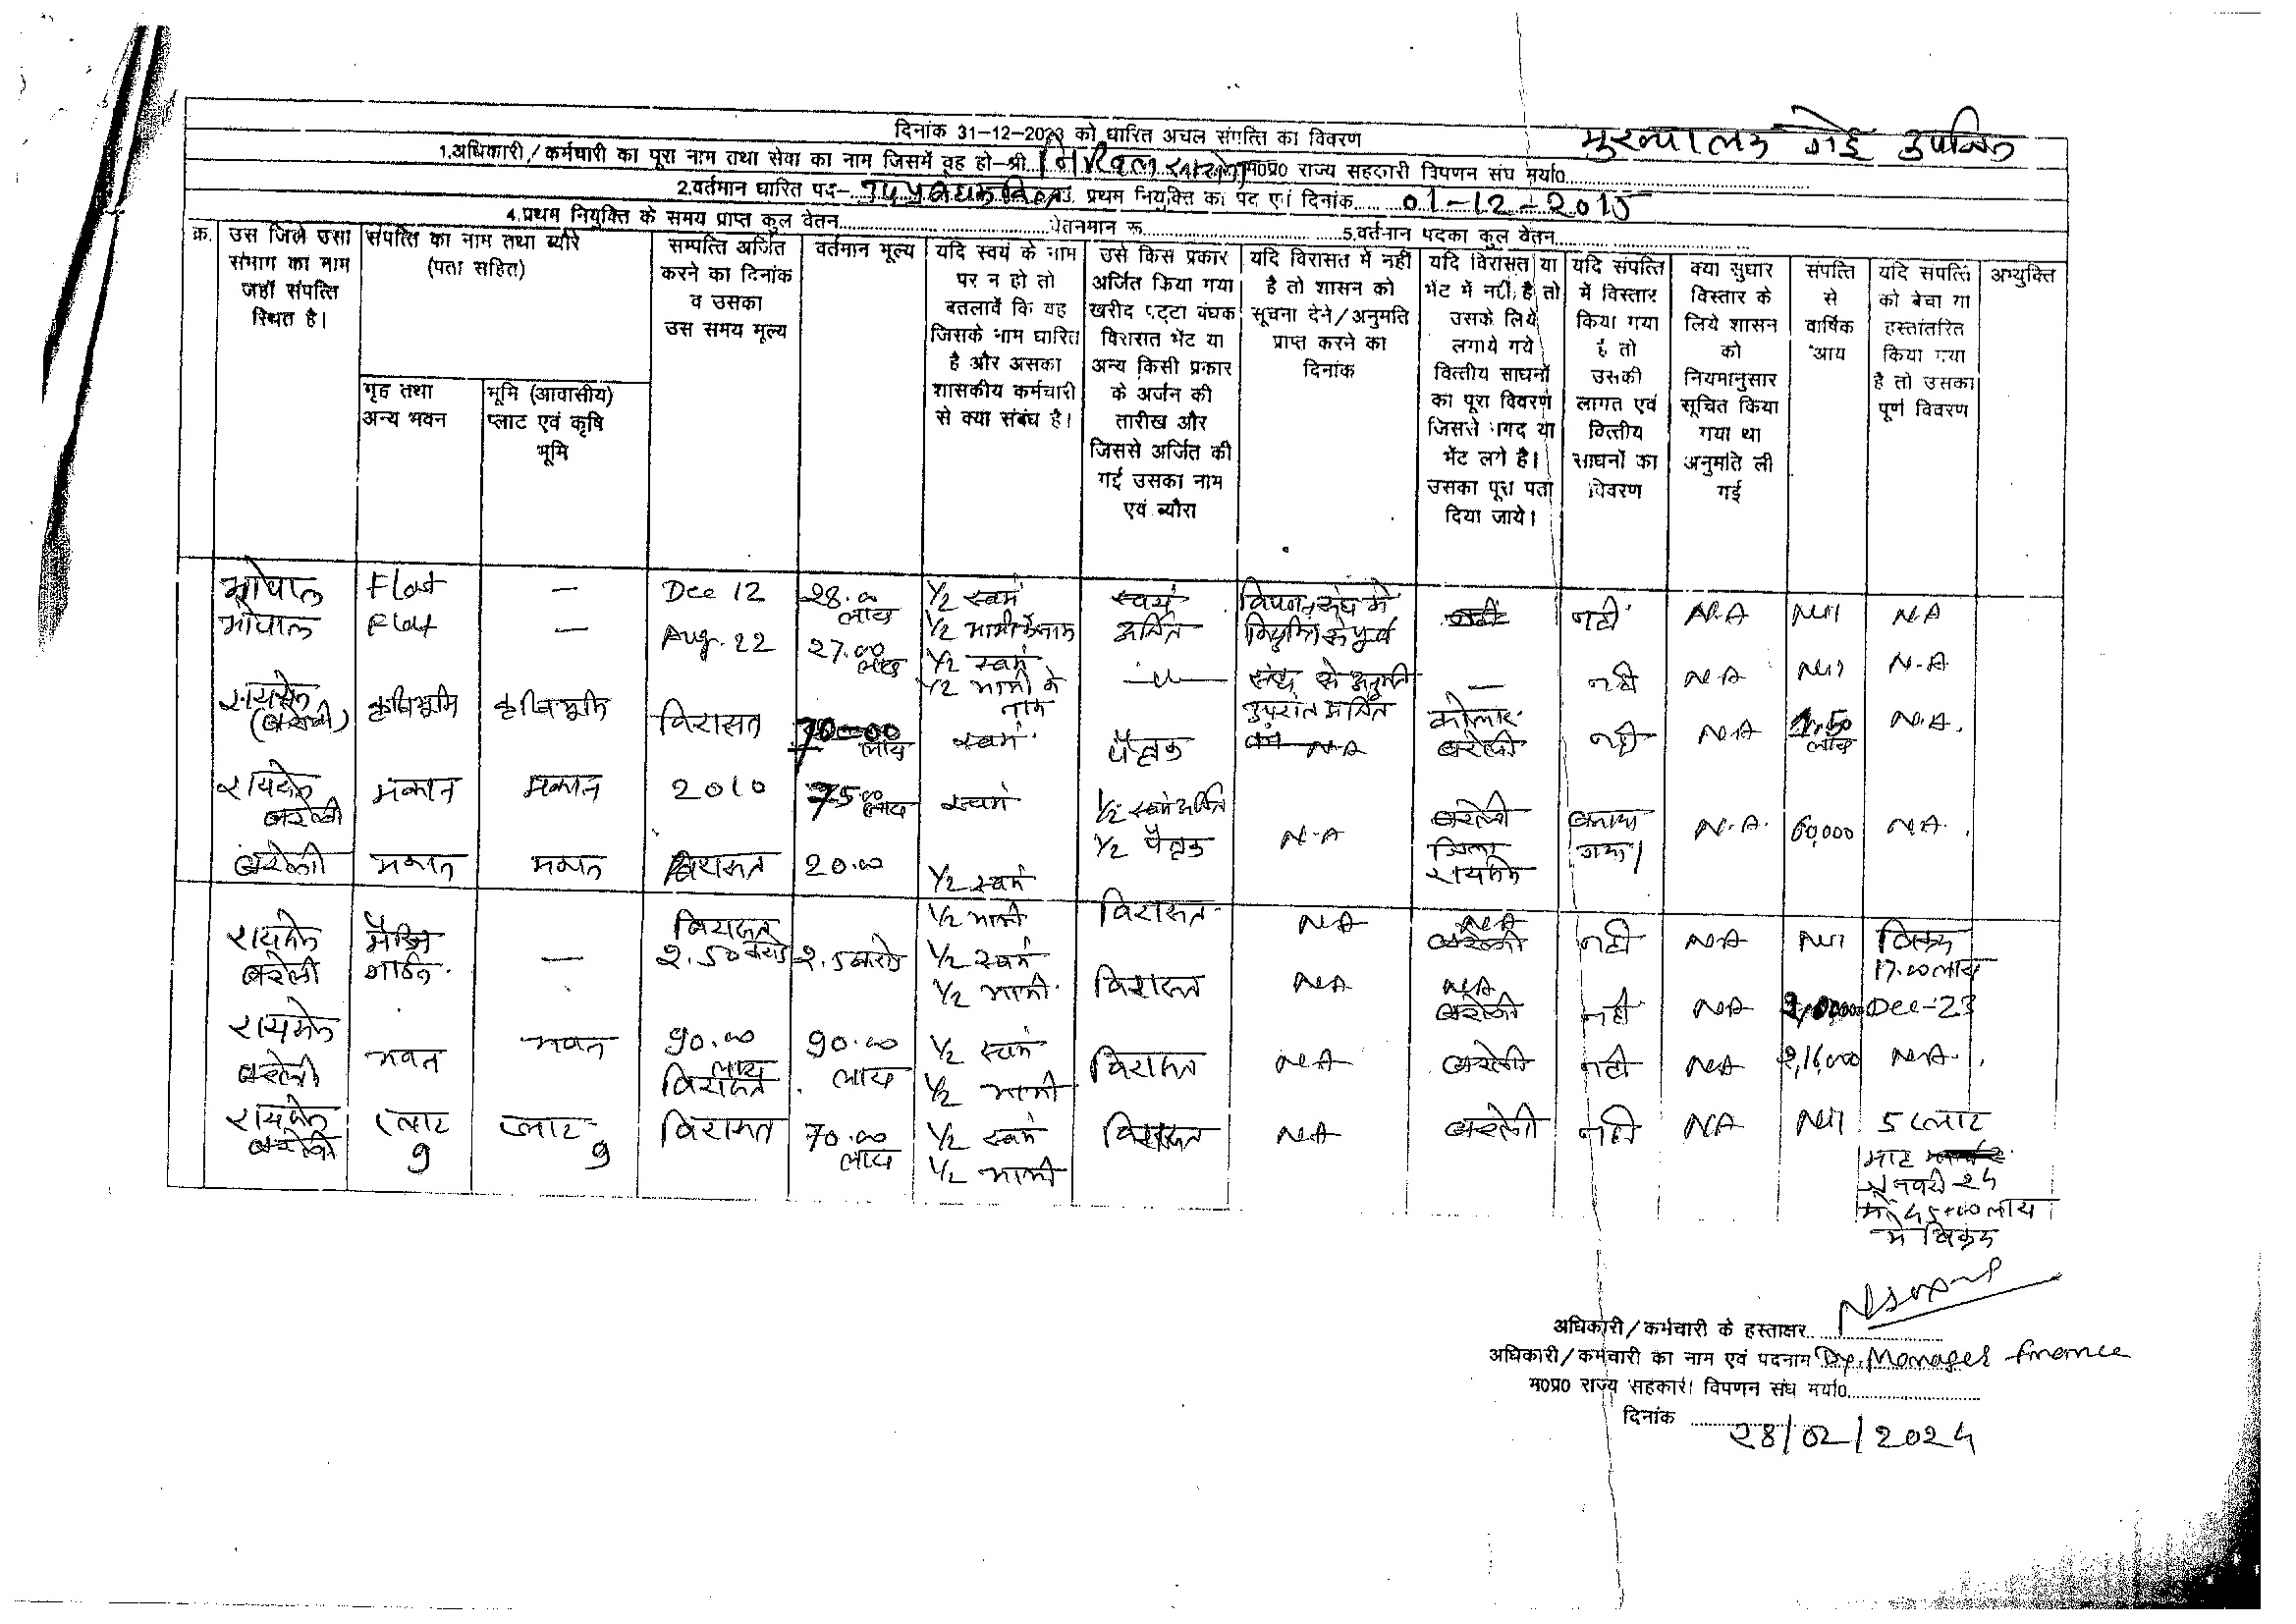 दिनांक 31-12-2023 को धारित अचल संपत्ति का विवरण
1.अधिकारी/कर्मचारी का पूरा नाम तथा सेवा का नाम जिसमें वह हो-श्री म0प्र0 राज्य सहकारी विपणन संघ मर्या0
2.वर्तमान धारित पद- 3. प्रथम नियुक्ति का पद एवं दिनांक 01-12-2015
4.प्रथम नियुक्ति के समय प्राप्त कुल वेतन वेतनमान रू. 5.वर्तमान पदका कुल वेतन
क्र. उस जिले उसा संभाग का नाम जहाँ संपत्ति स्थित है।
संपत्ति का नाम तथा ब्यौरे (पता सहित)
गृह तथा अन्य भवन
भूमि (आवासीय) प्लाट एवं कृषि भूमि
सम्पत्ति अर्जित करने का दिनांक व उसका उस समय मूल्य
वर्तमान मूल्य
यदि स्वयं के नाम पर न हो तो बतलावें कि वह जिसके नाम धारित है और असका शासकीय कर्मचारी से क्या संबंध है।
उसे किस प्रकार अर्जित किया गया खरीद पट्टा बंधक विरासत भेंट या अन्य किसी प्रकार के अर्जन की तारीख और जिससे अर्जित की गई उसका नाम एवं ब्यौरा
यदि विरासत में नहीं है तो शासन को सूचना देने/अनुमति प्राप्त करने का दिनांक
यदि विरासत या भेंट में नहीं है तो उसके लिये लगाये गये वित्तीय साधनों का पूरा विवरण जिससे नगद या भेंट लगे है। उसका पूरा पता दिया जाये।
यदि संपत्ति में विस्तार किया गया है तो उसकी लागत एवं वित्तीय साधनों का विवरण
क्या सुधार विस्तार के लिये शासन को नियमानुसार सूचित किया गया था अनुमति ली गई
संपत्ति से वार्षिक आय
यदि संपत्ति को बेचा या हस्तांतरित किया गया है तो उसका पूर्ण विवरण
अभ्युक्ति
भोपाल Flat — Dec 12 28.00 लाख 1/2 स्वयं स्वयं अर्जित विपणन संघ में नियुक्ति के पूर्व नहीं N.A Nil N.A
भोपाल Flat — Aug. 22 27.00 लाख 1/2 स्वयं — नहीं N.A Nil N.A
रायसेन (बरेली) कृषि भूमि कृषि भूमि विरासत 70.00 लाख स्वयं पैतृक N.A बरेली नहीं N.A लाख N.A.
रायसेन बरेली मकान मकान 2010 75.00 लाख स्वयं 1/2 स्वयं अर्जित 1/2 पैतृक N.A बरेली जिला रायसेन N.A. 60,000 N.A.
बरेली मकान मकान विरासत 20.00 1/2 स्वयं विरासत N.A N.A बरेली नहीं N.A Nil विक्रय 17.00 लाख Dec-23
रायसेन बरेली मैरिज गार्डन — विरासत 2.50 करोड़ 2.5 करोड़ 1/2 स्वयं विरासत N.A N.A बरेली नहीं N.A
रायसेन बरेली भवन भवन 90.00 लाख विरासत 90.00 लाख 1/2 स्वयं विरासत N.A बरेली नहीं N.A 2,16,000 N.A.
रायसेन बरेली प्लाट 9 प्लाट 9 विरासत 70.00 लाख 1/2 स्वयं विरासत N.A बरेली नहीं N.A Nil 5 प्लाट
जनवरी 24
में 45.00 लाख
में विक्रय
अधिकारी/कर्मचारी के हस्ताक्षर
अधिकारी/कर्मचारी का नाम एवं पदनाम Dy. Manager finance
म0प्र0 राज्य सहकारी विपणन संघ मर्या0
दिनांक 28/02/2024